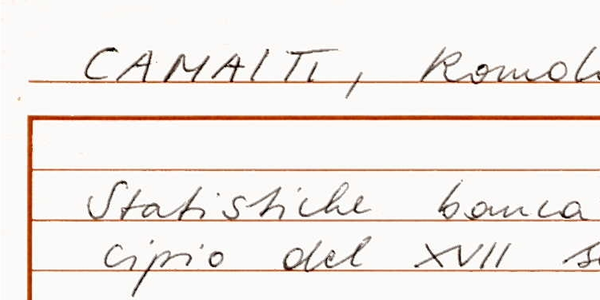 CAMAITI, Romol
Statistiche banca
cipio del XVII s